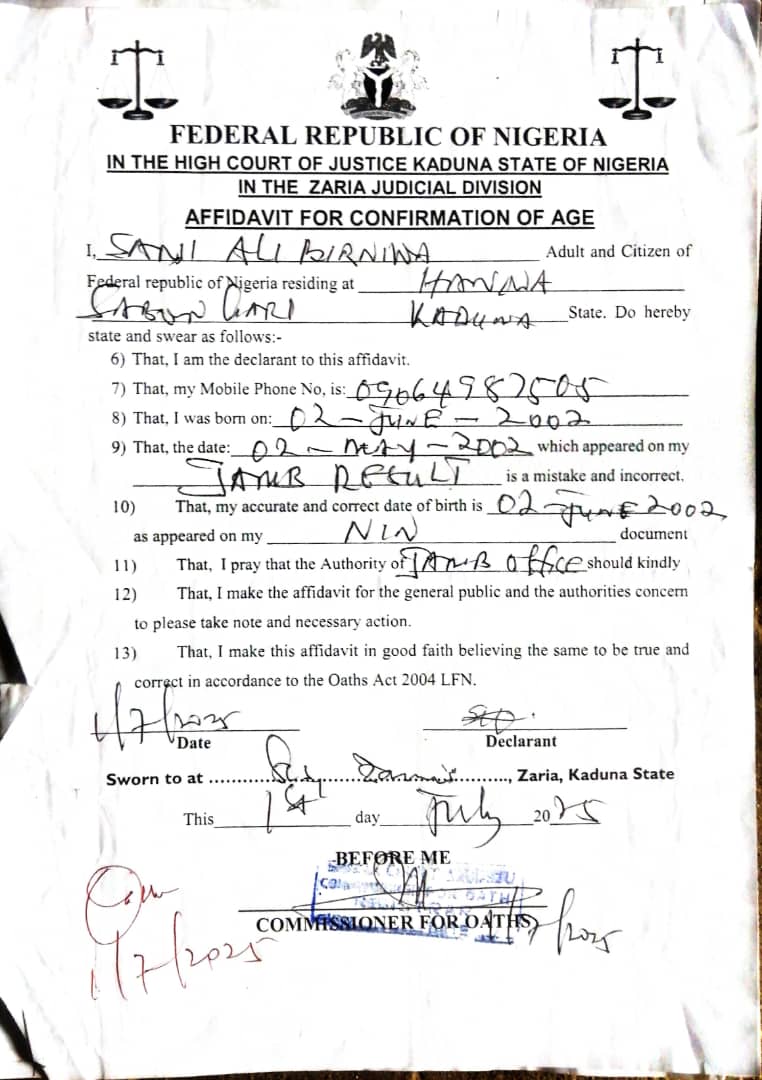 FEDERAL REPUBLIC OF NIGERIA
IN THE HIGH COURT OF JUSTICE KADUNA STATE OF NIGERIA
IN THE ZARIA JUDICIAL DIVISION
AFFIDAVIT FOR CONFIRMATION OF AGE
I, SANI ALI BIRNIWA Adult and Citizen of
Federal republic of Nigeria residing at HANWA
SABON GARI KADUNA State. Do hereby
state and swear as follows:-
6) That, I am the declarant to this affidavit.
7) That, my Mobile Phone No, is: 09064987505
8) That, I was born on: 02-JUNE-2002
9) That, the date: 02-MAY-2002 which appeared on my
JAMB RESULT is a mistake and incorrect.
10) That, my accurate and correct date of birth is 02-JUNE 2002
as appeared on my NIN document
11) That, I pray that the Authority of JAMB Office should kindly
12) That, I make the affidavit for the general public and the authorities concern
to please take note and necessary action.
13) That, I make this affidavit in good faith believing the same to be true and
correct in accordance to the Oaths Act 2004 LFN.
1/7/2025
Date Declarant
Sworn to at ..................., Zaria, Kaduna State
This 1st day July 2025
BEFORE ME
COMMISSIONER FOR OATHS 1/7/2025
1/7/2025